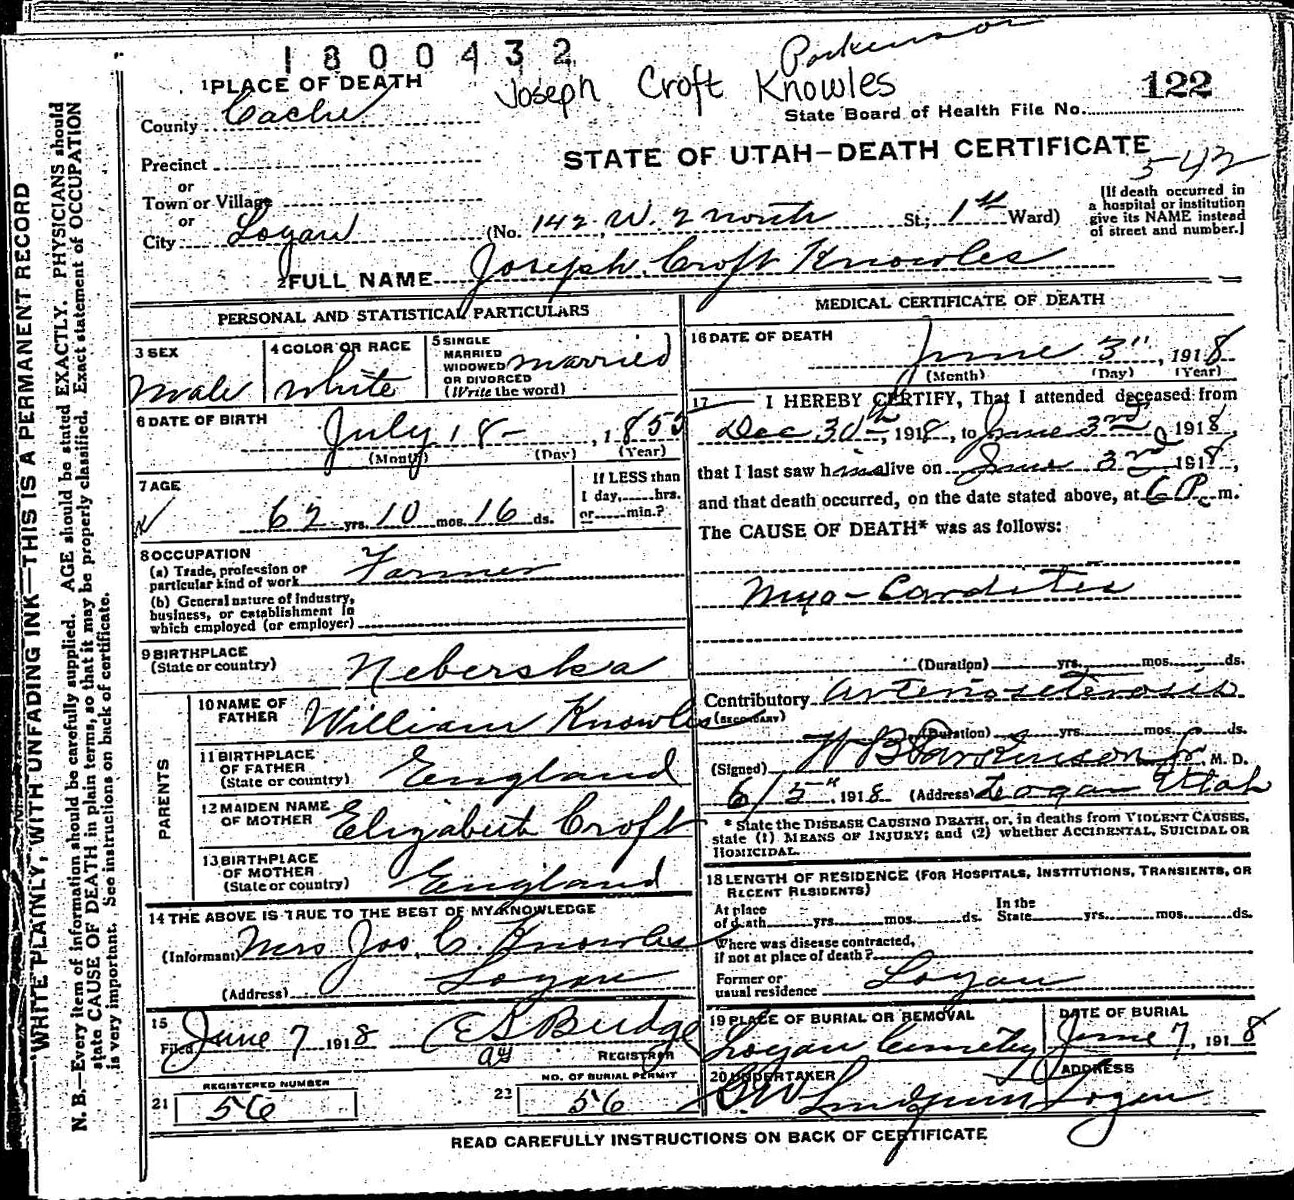 1800432
Parkinson
Joseph Croft Knowles
122
1 PLACE OF DEATH
County Cache
State Board of Health File No.
STATE OF UTAH—DEATH CERTIFICATE
542
Precinct
or
Town or Village
or
City Logan (No. 142 W. 2 north St; 1st Ward)
[If death occurred in
a hospital or institution
give its NAME instead
of street and number.]
2 FULL NAME Joseph Croft Knowles
PERSONAL AND STATISTICAL PARTICULARS
3 SEX
Male
4 COLOR OR RACE
White
5 SINGLE
MARRIED
WIDOWED
OR DIVORCED
(Write the word)
married
6 DATE OF BIRTH
July 18- , 1855
(Month) (Day) (Year)
7 AGE
62 yrs. 10 mos. 16 ds.
If LESS than
1 day, hrs.
or min.?
8 OCCUPATION
(a) Trade, profession or
particular kind of work Farmer
(b) General nature of industry,
business, or establishment in
which employed (or employer)
9 BIRTHPLACE
(State or country) Neberska
PARENTS
10 NAME OF
FATHER William Knowles
11 BIRTHPLACE
OF FATHER
(State or country) England
12 MAIDEN NAME
OF MOTHER Elizabeth Croft
13 BIRTHPLACE
OF MOTHER
(State or country) England
14 THE ABOVE IS TRUE TO THE BEST OF MY KNOWLEDGE
(Informant) Mrs Jos. C. Knowles
(Address) Logan
15
Filed June 7 1918 E S Budge
REGISTRAR
REGISTERED NUMBER
21 56
NO. OF BURIAL PERMIT
22 56
MEDICAL CERTIFICATE OF DEATH
16 DATE OF DEATH
June 3" , 1918
(Month) (Day) (Year)
17 I HEREBY CERTIFY, That I attended deceased from
Dec 30th , 1918, to June 3rd 1918,
that I last saw him alive on June 3rd 1918,
and that death occurred, on the date stated above, at 6 P. m.
The CAUSE OF DEATH* was as follows:
Myo-Carditis
(Duration) yrs. mos. ds.
Contributory Arteriosclerosis
(SECONDARY)
(Duration) yrs. mos. ds.
(Signed) W B Parkinson Jr. M. D.
6/5th, 1918 (Address) Logan Utah
* State the DISEASE CAUSING DEATH, or, in deaths from VIOLENT CAUSES,
state (1) MEANS OF INJURY; and (2) whether ACCIDENTAL, SUICIDAL OR
HOMICIDAL.
18 LENGTH OF RESIDENCE (FOR HOSPITALS, INSTITUTIONS, TRANSIENTS, OR
RECENT RESIDENTS)
At place
of death yrs. mos. ds.
In the
State yrs. mos. ds.
Where was disease contracted,
if not at place of death?
Former or
usual residence Logan
19 PLACE OF BURIAL OR REMOVAL
Logan Cemetry
DATE OF BURIAL
June 7, 1918
20 UNDERTAKER
Lindquist
ADDRESS
Logan
READ CAREFULLY INSTRUCTIONS ON BACK OF CERTIFICATE
WRITE PLAINLY, WITH UNFADING INK—THIS IS A PERMANENT RECORD
N. B.—Every item of information should be carefully supplied. AGE should be stated EXACTLY. PHYSICIANS should
state CAUSE OF DEATH in plain terms, so that it may be properly classified. Exact statement of OCCUPATION
is very important. See instructions on back of certificate.